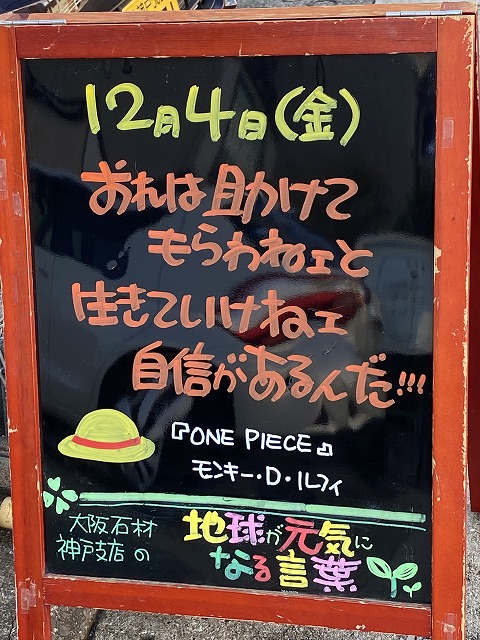 12月4日(金)
おれは助けて
もらわねェと
生きていけねェ
自信があるんだ!!!
『ONE PIECE』
モンキー・D・ルフィ
大阪石材
神戸支店の
地球が元気に
なる言葉